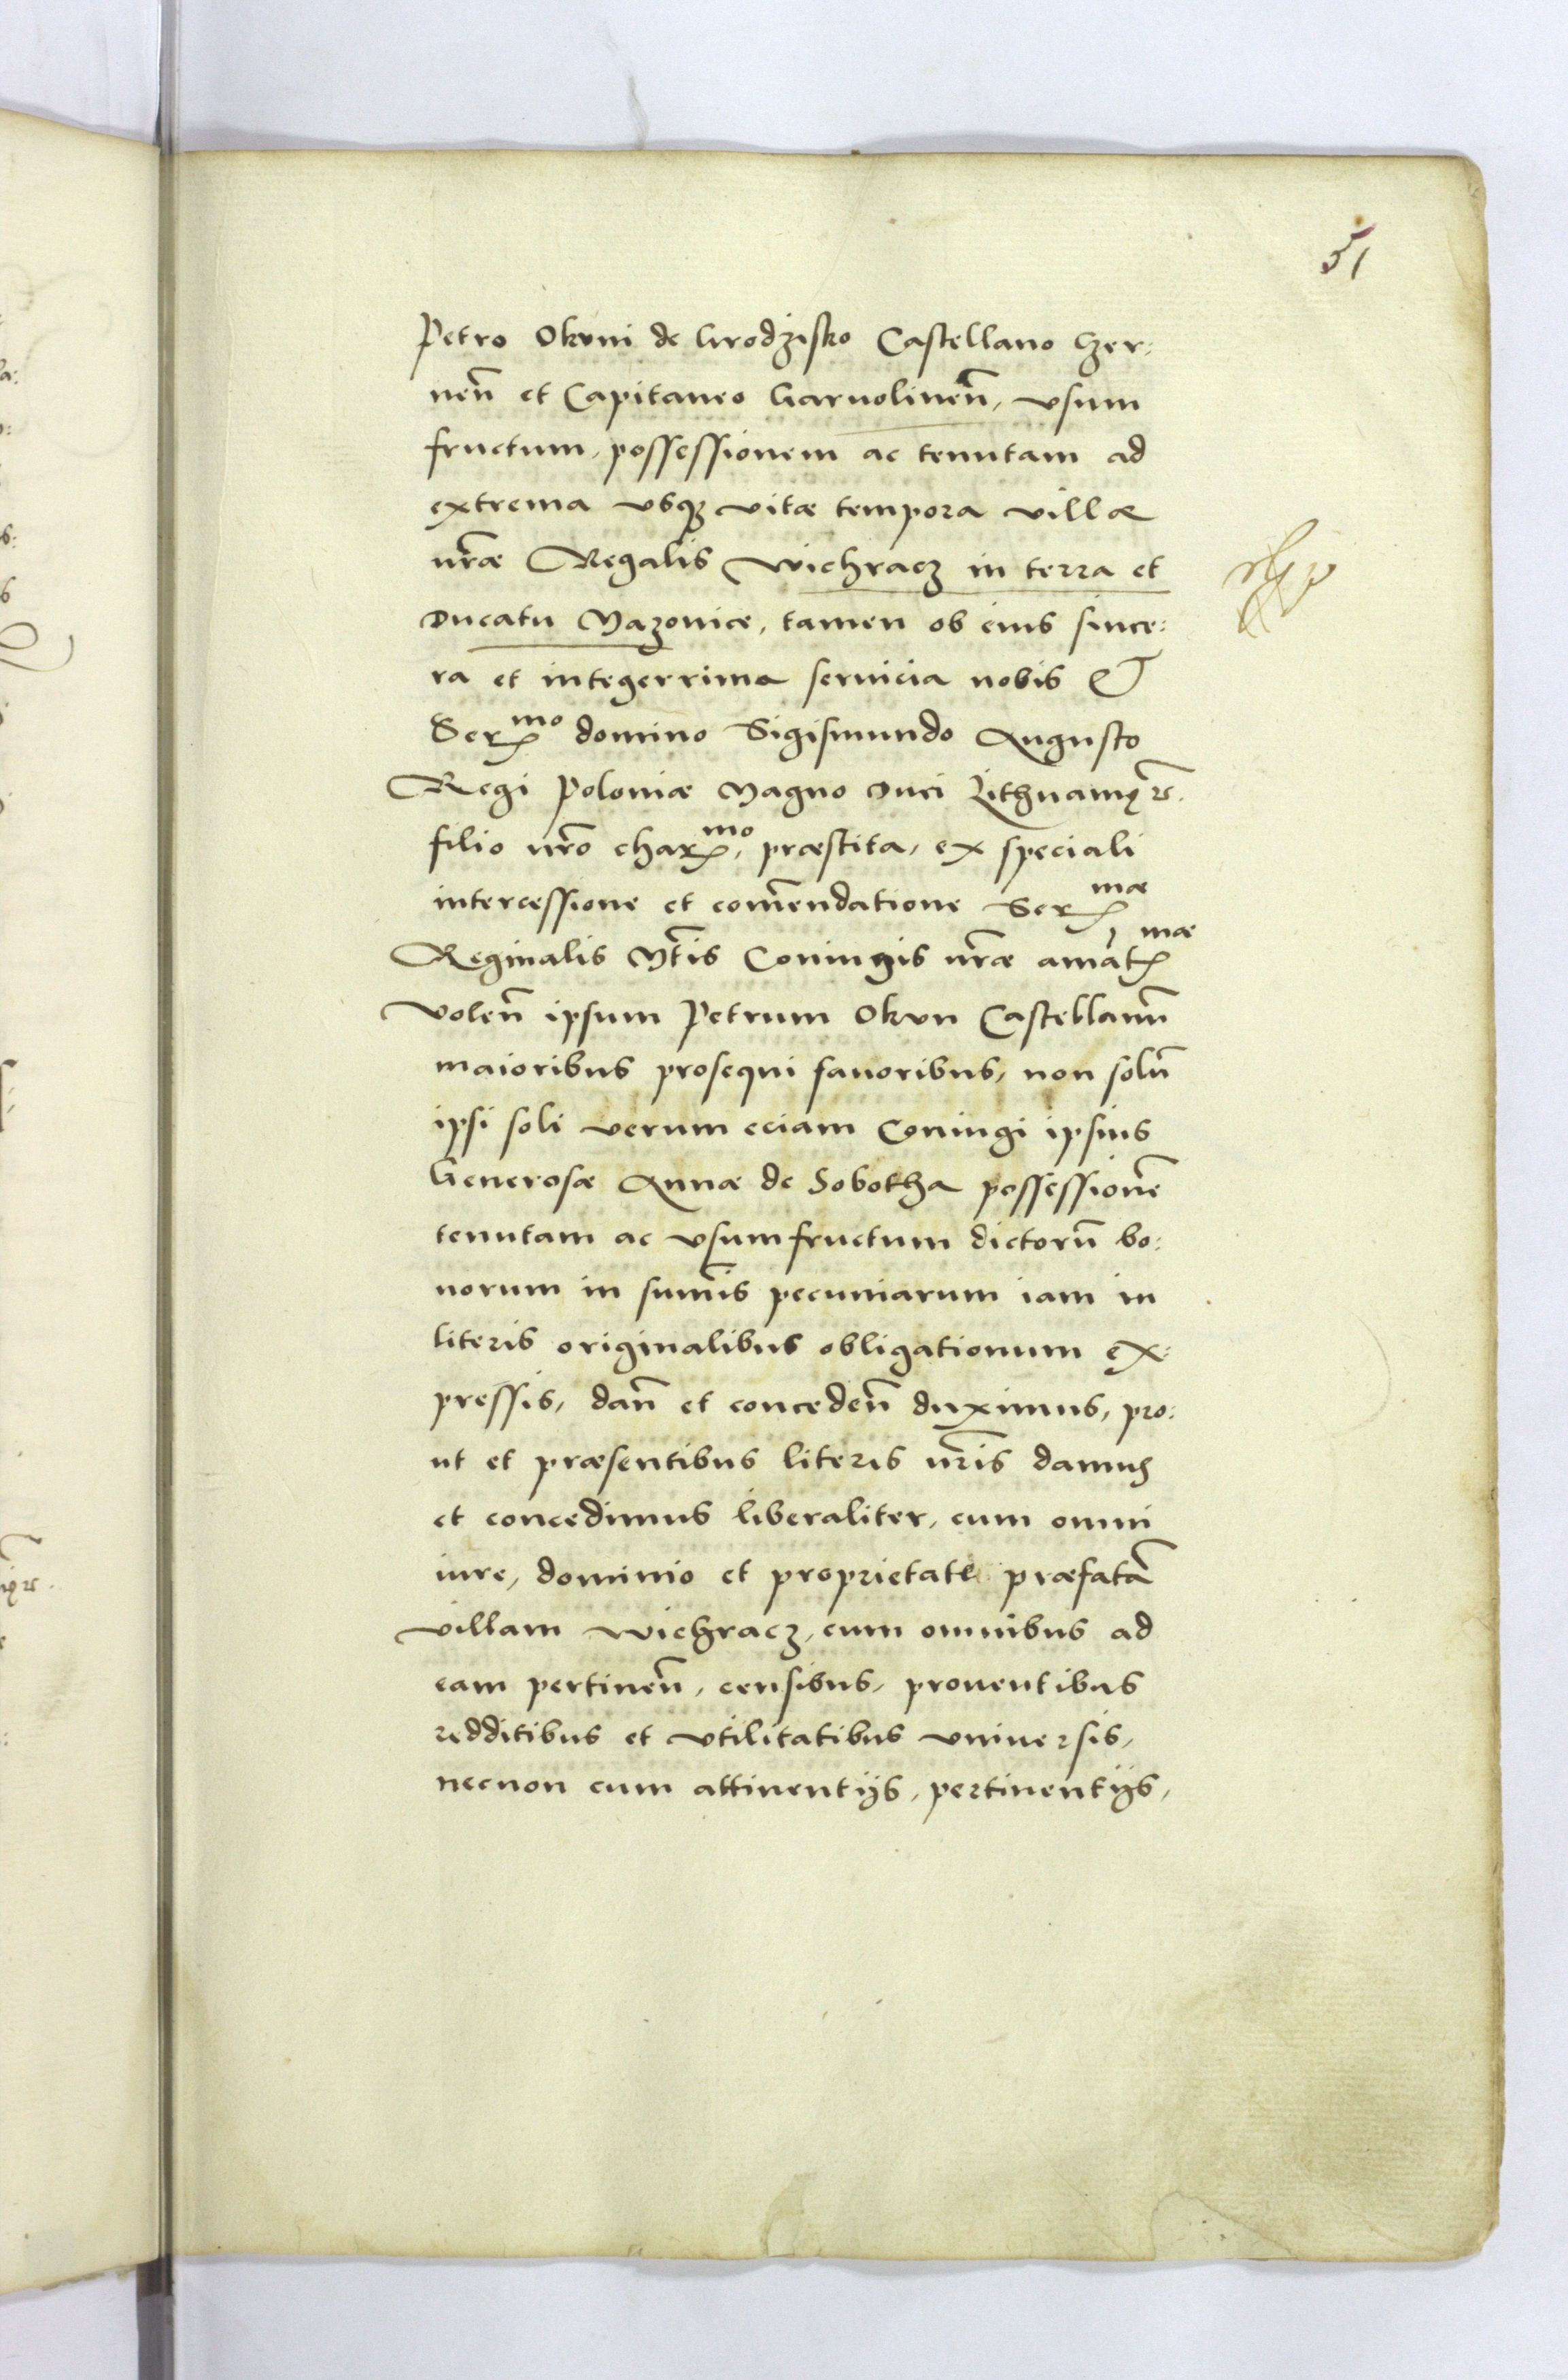 51
Petro Okuni de Grodzisko Castellano Czer:
nen̄ et Capitaneo Garuolinen̄, vsum
fructum, possessionem ac tenutam ad
extrema vsq3 vitæ tempora villæ
nr̄æ Regalis Wichracz in terra et
Ducatu Mazoviæ, tamen ob eius since:
ra et integerrima seruicia nobis &
Serᵐᵒ domino Sigismundo Augusto
Regi Poloniæ Magno Duci Lithuaniæ
filio nr̄o charᵐᵒ, præstita, ex speciali
intercessione et com̄endatione Serᵐᵃᵉ
Reginalis Mt̄is Coniugis nr̄æ amantᵐᵃᵉ
volen̄ ipsum Petrum Okun Castellanū
maioribus prosequi fauoribus, non solū
ipsi soli verum eciam Coniugi ipsius
Generosæ Annæ de Sobotha possessionē
tenutam ac vsumfructum dictorū bo:
norum in sum̄is pecuniarum iam in
literis originalibus obligationum ex:
pressis, dan̄ et conceden̄ duximus, pro:
ut et præsentibus literis nr̄is damus
et concedimus liberaliter, cum omni
iure, dominio et proprietate præfatā
villam Wichracz, cum omnibus ad
eam pertinen̄, censibus, prouentibus
redditibus et vtilitatibus vniuersis,
necnon cum attinentijs, pertinentijs,